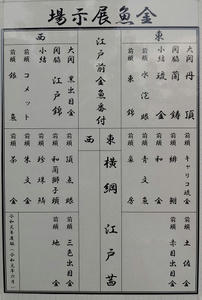 金魚展示場
東
大関 丹頂
関脇 蘭鋳
小結 琉金
前頭 水泡眼
前頭 東錦
江戸前金魚番付
西
大関 黒出目金
関脇 江戸錦
小結
前頭 コメット
前頭 銀魚
前頭 キャリコ琉金
前頭
前頭 和金
前頭 青文魚
前頭
東 横綱 江戸茜
西
前頭 頂点眼
前頭 和蘭獅子頭
前頭 珍珠鱗
前頭 朱文金
前頭 茶金
前頭 土佐金
前頭 赤出目金
前頭 三色出目金
前頭 地金